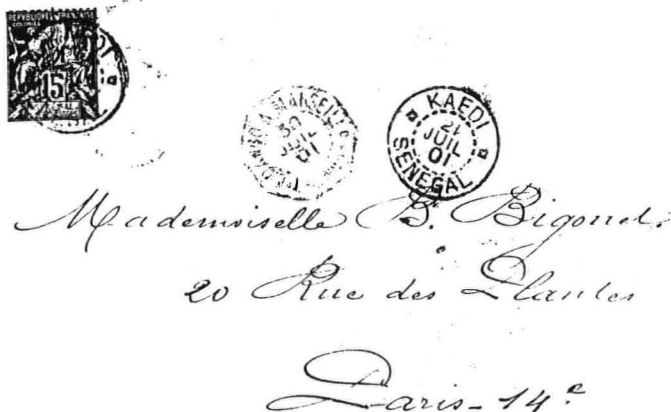 REPUBLIQUE FRANÇAISE
COLONIES
15
A MARSEILLE
30
JUIL
01
KAEDI
21
JUIL
01
SENEGAL
Mademoiselle B. Bigonet.
20 Rue des Plantes
Paris - 14e